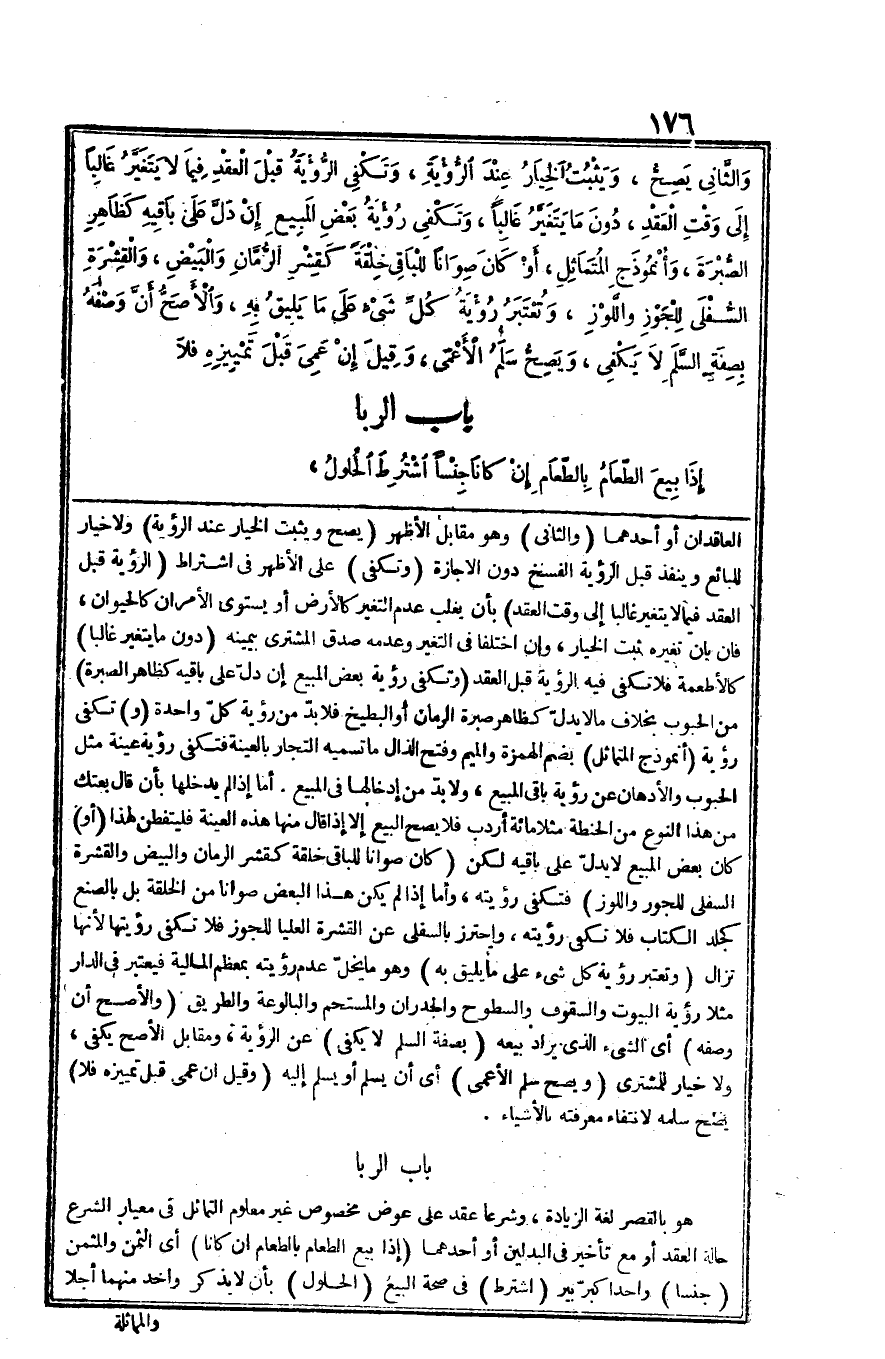 ١٧٦
وَالثَّانِى يَصِحُّ ، وَيَثْبُتُ الْخِيَارُ عِنْدَ الرُّؤْيَةِ ، وَتَكْفِى الرُّؤْيَةُ قَبْلَ الْعَقْدِ فِيمَا لَا يَتَغَيَّرُ غَالِبًا
إِلَى وَقْتِ الْعَقْدِ ، دُونَ مَا يَتَغَيَّرُ غَالِبًا ، وَتَكْفِى رُؤْيَةُ بَعْضِ الْمَبِيعِ إِنْ دَلَّ عَلَى بَاقِيهِ كَظَاهِرِ
الصُّبْرَةِ ، وَأُنْمُوذَجِ الْمُتَمَاثِلِ ، أَوْ كَانَ صِوَانًا لِلْبَاقِى خِلْقَةً كَقِشْرِ الرُّمَّانِ وَالْبَيْضِ ، وَالْقِشْرَةِ
السُّفْلَى لِلْجَوْزِ وَاللَّوْزِ ، وَتُعْتَبَرُ رُؤْيَةُ كُلِّ شَىْءٍ عَلَى مَا يَلِيقُ بِهِ ، وَالْأَصَحُّ أَنَّ وَصْفَهُ
بِصِفَةِ السَّلَمِ لَا يَكْفِى ، وَيَصِحُّ سَلَمُ الْأَعْمَى ، وَقِيلَ إِنْ عَمِىَ قَبْلَ تَمْيِيزِهِ فَلَا
باب الربا
إِذَا بِيعَ الطَّعَامُ بِالطَّعَامِ إِنْ كَانَا جِنْسًا اشْتُرِطَ الْحُلُولُ ،
العاقدان أو أحدهما (والثانى) وهو مقابل الأظهر (يصح ويثبت الخيار عند الرؤية) ولا خيار
للبائع وينفذ قبل الرؤية الفسخ دون الاجازة (وتكفى) على الأظهر فى اشتراط (الرؤية قبل
العقد فيما لا يتغير غالبا إلى وقت العقد) بأن يغلب عدم التغير كالأرض أو يستوى الأمران كالحيوان ،
فان بان تغيره ثبت الخيار ، وإن اختلفا فى التغير وعدمه صدق المشترى بيمينه (دون ما يتغير غالبا)
كالأطعمة فلا تكفى فيه الرؤية قبل العقد (وتكفى رؤية بعض المبيع إن دل على باقيه كظاهر الصبرة)
من الحبوب بخلاف مالا يدلّ كظاهر صبرة الرمان أو البطيخ فلا بدّ من رؤية كلّ واحدة (و) تكفى
رؤية (أنموذج المتماثل) بضم الهمزة والميم وفتح الذال ما تسميه التجار بالعينة فتكفى رؤية عينة مثل
الحبوب والأدهان عن رؤية باقى المبيع ، ولا بدّ من إدخالها فى المبيع . أما إذا لم يدخلها بأن قال بعتك
من هذا النوع من الحنطة مثلا مائة أردب فلا يصح البيع إلا إذا قال منها هذه العينة فليتفطن لهذا (أو)
كان بعض المبيع لا يدلّ على باقيه لكن (كان صوانا للباقى خلقة كقشر الرمان والبيض والقشرة
السفلى للجوز واللوز) فتكفى رؤيته ، وأما إذا لم يكن هذا البعض صوانا من الخلقة بل بالصنع
كجلد الكتاب فلا تكفى رؤيته ، واحترز بالسفلى عن القشرة العليا للجوز فلا تكفى رؤيتها لأنها
تزال (وتعتبر رؤية كل شىء على ما يليق به) وهو ما يخلّ عدم رؤيته بمعظم المالية فيعتبر فى الدار
مثلا رؤية البيوت والسقوف والسطوح والجدران والمستحم والبالوعة والطريق (والأصح أن
وصفه) أى الشىء الذى يراد بيعه (بصفة السلم لا يكفى) عن الرؤية ، ومقابل الأصح يكفى ،
ولا خيار للمشترى (ويصح سلم الأعمى) أى أن يسلم أو يسلم إليه (وقيل ان عمى قبل تمييزه فلا)
يصح سلمه لانتفاء معرفته بالأشياء .
باب الربا
هو بالقصر لغة الزيادة ، وشرعا عقد على عوض مخصوص غير معلوم التماثل فى معيار الشرع
حالة العقد أو مع تأخير فى البدلين أو أحدهما (إذا بيع الطعام بالطعام ان كانا) أى الثمن والمثمن
(جنسا) واحدا كبرّ ببر (اشترط) فى صحة البيع (الحلول) بأن لا يذكر واحد منهما أجلا
والمماثلة